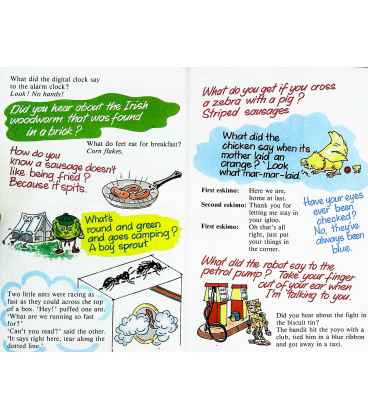 What did the digital clock say
to the alarm clock?
Look! No hands!
Did you hear about the Irish
woodworm that was found
in a brick?
What do feet eat for breakfast?
Corn flakes.
How do you
know a sausage doesn't
like being fried?
Because it spits.
What's
round and green
and goes camping?
A boy sprout
Two little ants were racing as
fast as they could across the top
of a box. 'Hey!' puffed one ant.
'What are we running so fast
for?'
'Can't you read?' said the other.
'It says right here, tear along the
dotted line.'
What do you get if you cross
a zebra with a pig?
Striped sausages
What did the
chicken say when its
mother laid an
orange? 'Look
what mar-mar-laid'
First eskimo: Here we are,
home at last.
Second eskimo: Thank you for
letting me stay in
your igloo.
First eskimo: Oh that's all
right, just put
your things in
the corner.
Have your eyes
ever been
checked?
No, they've
always been
blue.
What did the robot say to the
petrol pump? Take your finger
out of your ear when
I'm talking to you.
Did you hear about the fight in
the biscuit tin?
The bandit hit the yoyo with a
club, tied him in a blue ribbon
and got away in a taxi.